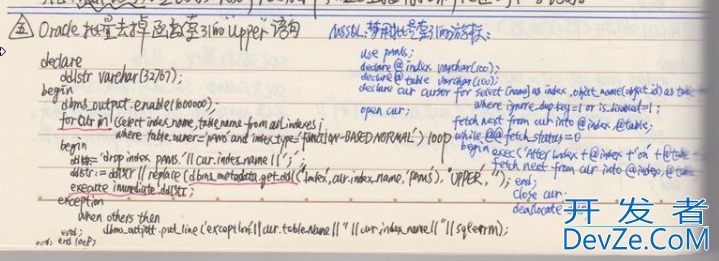 ㊄ Oracle 批量去掉函数索引的"upper"语句
declare
ddlstr varchar(32767);
begin
dbms_output.enable(1000000);
for cur in (select index_name, table_name from all_indexes i
where table_owner='pams' and index_type='FUNCTION-BASED NORMAL') loop
begin
ddlstr:='drop index pams.'||cur.index_name||';';
ddlstr:=ddlstr||replace(dbms_metadata.get_ddl('index',cur.index_name,'pams'),'UPPER','');
execute immediate ddlstr;
exception
when others then
dbms_output.put_line('exception:'||cur.table_name||''||cur.index_name||''||sqlerrm);
end;
end loop
MSSQL: 禁用批号索引的游标:
use pams;
declare @index varchar(100);
declare @table varchar(100);
declare cur cursor for select [name] as index, object_name(object_id) as table
where ignore_dup_key=1 or is_disabled=1;
open cur;
fetch next from cur into @index,@table;
while @@fetch_status=0
begin exec('Alter index'+@index+'on'+@table
fetch next from cur into @index,@table
end;
close cur
deallocate
开发者
DevZe.CoM